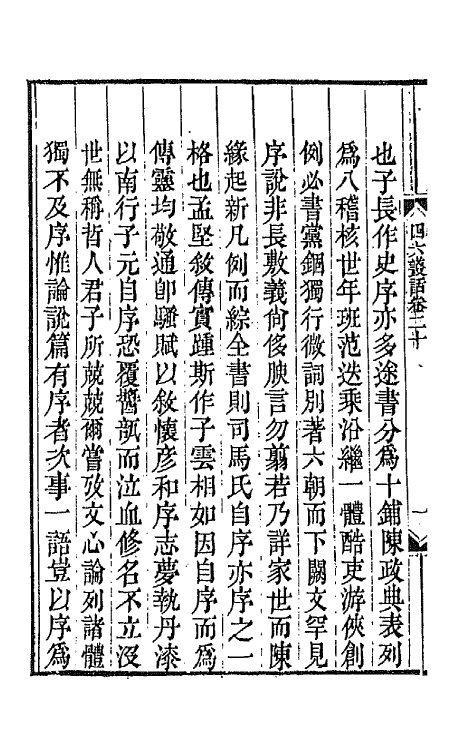 四六叢話卷二十
一
也子長作史序亦多途書分爲十鋪陳政典表列
爲八稽核世年班范迭乘沿繼一體酷吏游俠創
例必書黨錮獨行微詞別著六朝而下闕文罕見
序說非長敷義尙侈腴言勿翦若乃詳家世而陳
緣起新凡例而綜全書則司馬氏自序亦序之一
格也孟堅敘傳實踵斯作子雲相如因自序而爲
傳靈均敬通卽騷賦以敘懷彦和序志夢執丹漆
以南行子元自序恐覆醬瓿而泣血修名不立沒
世無稱哲人君子所兢兢爾嘗攷文心論列諸體
獨不及序惟論說篇有序者次事一語豈以序爲